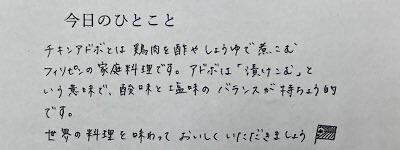 今日のひとこと
チキンアドボとは 鶏肉を酢や しょうゆで 煮こむ
フィリピンの 家庭料理です。アドボは「漬けこむ」と
いう意味で、酸味と塩味の バランスが 特ちょう的
です。
世界の料理を 味わって おいしく いただきましょう